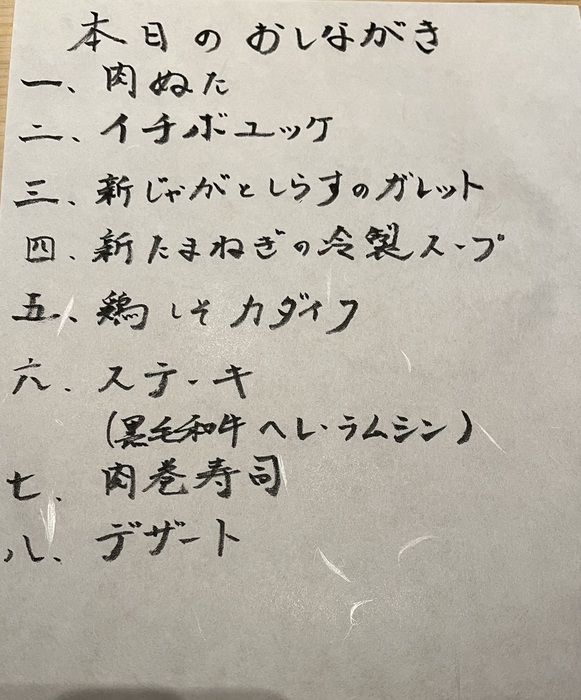 本日のおしながき
一、肉ぬた
二、イチボユッケ
三、新じゃがとしらすのガレット
四、新たまねぎの冷製スープ
五、鶏しそカダイフ
六、ステーキ
(黒毛和牛ヘレ・ラムシン)
七、肉巻寿司
八、デザート